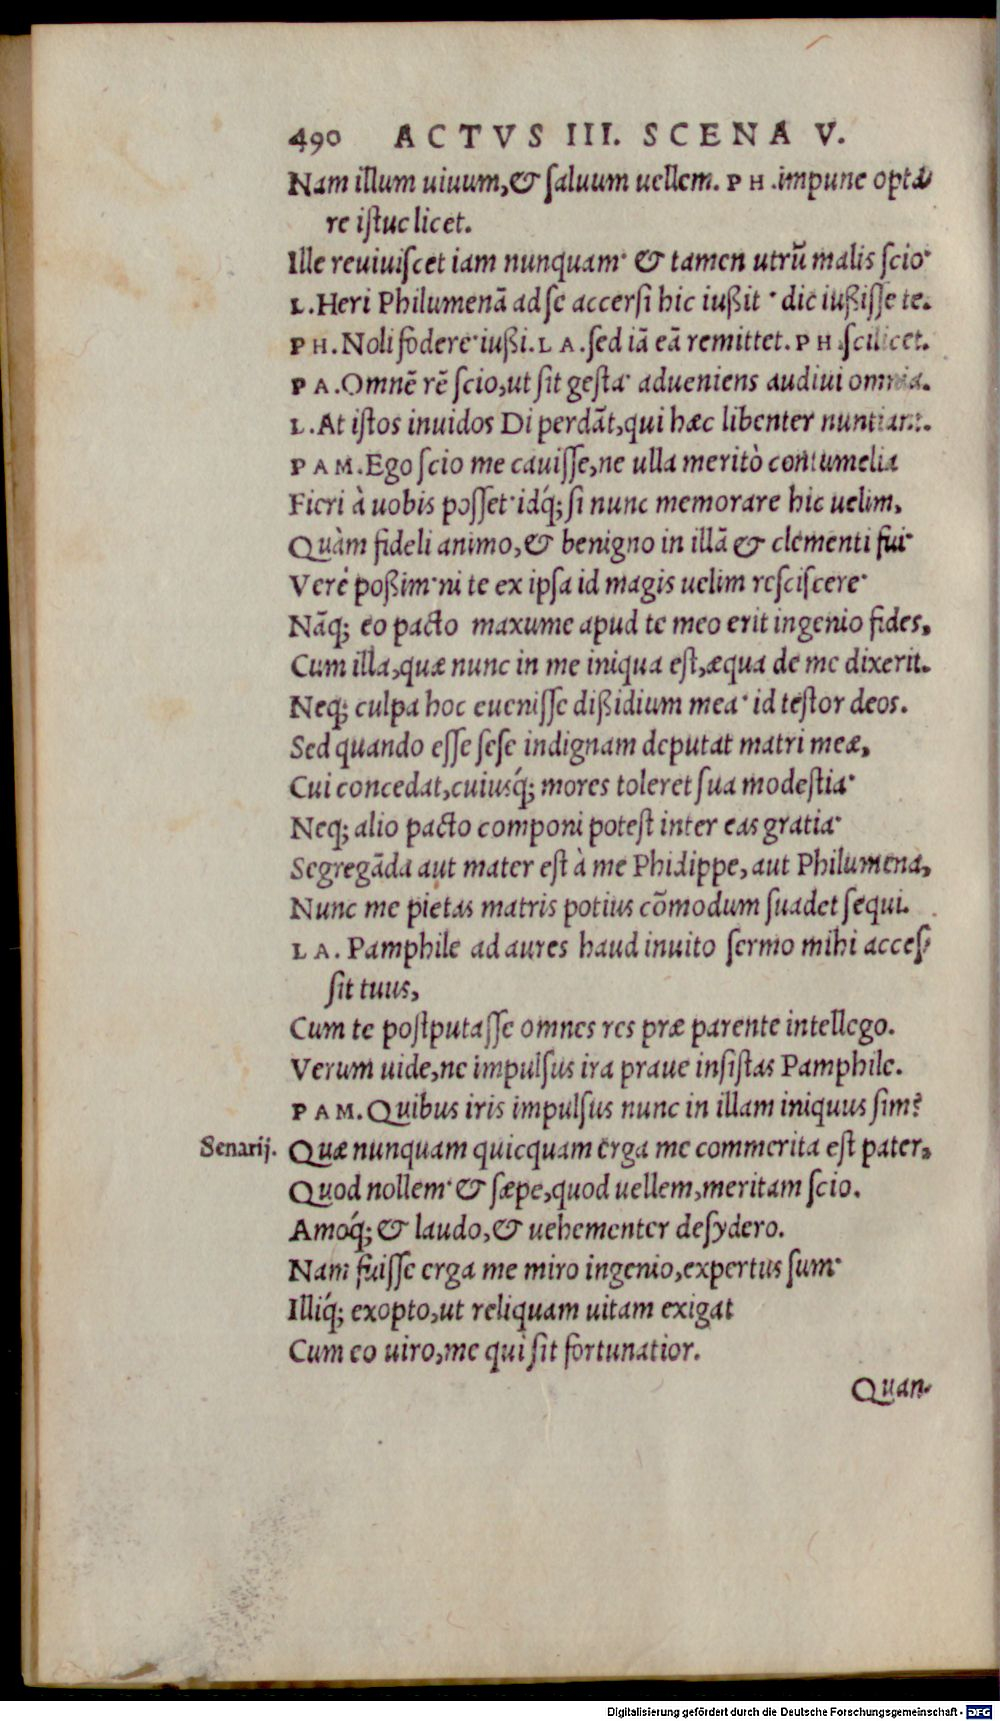 490 ACTVS III. SCENA V.
Nam illum uiuum,& ſaluum uellem. PH.impune opta
re iſtuc licet.
Ille reuiuiſcet iam nunquam· & tamen utrũ malis ſcio·
L.Heri Philumenã ad ſe accerſi hic iußit · dic iußiſſe te.
PH.Noli fodere·iußi.LA.ſed iã eã remittet.PH.ſcilicet.
PA.Omnẽ rẽ ſcio,ut ſit geſta· adueniens audiui omnia.
L.At iſtos inuidos Di perdãt,qui hæc libenter nuntiant.
PAM.Ego ſcio me cauiſſe,ne ulla meritò contumelia
Fieri à uobis poſſet·idq́; ſi nunc memorare hic uelim,
Quàm fideli animo,& benigno in illã & clementi fui·
Verè poßim·ni te ex ipſa id magis uelim reſciſcere·
Nãq; eo pacto maxume apud te meo erit ingenio fides,
Cum illa,quæ nunc in me iniqua eſt,æqua de me dixerit.
Neq; culpa hoc eueniſſe dißidium mea· id teſtor deos.
Sed quando eſſe ſeſe indignam deputat matri meæ,
Cui concedat,cuiusq́; mores toleret ſua modeſtia·
Neq; alio pacto componi poteſt inter eas gratia·
Segregãda aut mater eſt à me Phidippe, aut Philumena,
Nunc me pietas matris potius cõmodum ſuadet ſequi.
LA. Pamphile ad aures haud inuito ſermo mihi acceſ
ſit tuus,
Cum te poſtputaſſe omnes res præ parente intellego.
Verum uide,ne impulſus ira praue inſiſtas Pamphile.
PAM.Quibus iris impulſus nunc in illam iniquus ſim?
Senarij. Quæ nunquam quicquam erga me commerita eſt pater,
Quod nollem· & ſæpe,quod uellem,meritam ſcio.
Amoq́; & laudo,& uehementer deſydero.
Nam fuiſſe erga me miro ingenio,expertus ſum·
Illiq́; exopto,ut reliquam uitam exigat
Cum eo uiro,me qui ſit fortunatior.
Quan-
Digitalisierung gefördert durch die Deutsche Forschungsgemeinschaft - DFG